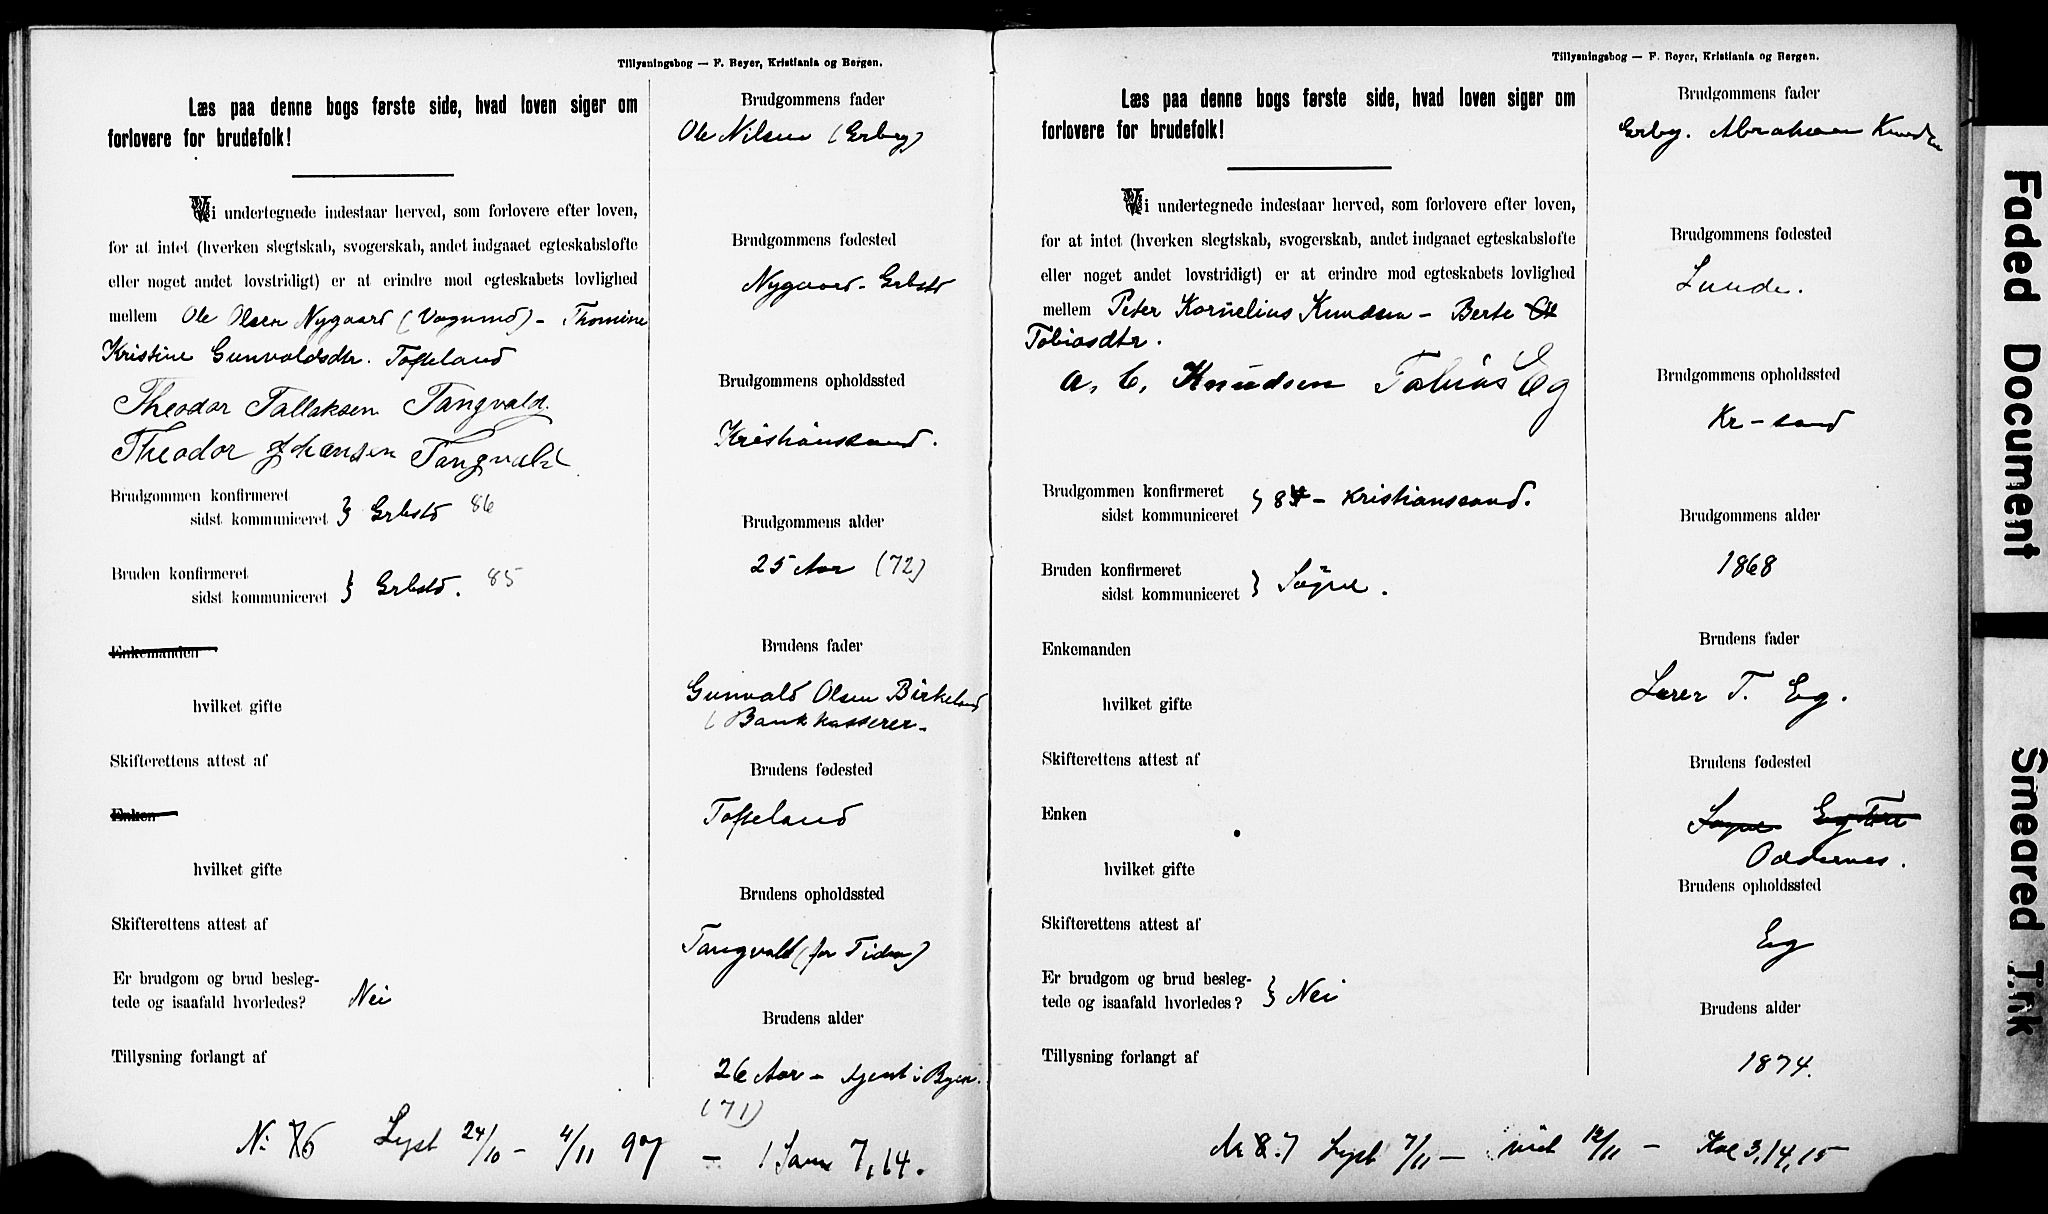 Tillysningsbog — F. Beyer, Kristiania og Bergen.
Læs paa denne bogs første side, hvad loven siger om
forlovere for brudefolk!
Vi undertegnede indestaar herved, som forlovere efter loven,
for at intet (hverken slegtskab, svogerskab, andet indgaaet egteskabsløfte
eller noget andet lovstridigt) er at erindre mod egteskabets lovlighed
mellem Ole Olsen Nygaard (Vognmd) - Thomine
Kristine Gunvaldsdtr. Tofteland
Theodor Tallaksen Tangvald.
Theodor Johansen Tangvald
Brudgommen konfirmeret
sidst kommuniceret } Grbstd 86
Bruden konfirmeret
sidst kommuniceret } Grbstd. 85
Enkemanden
hvilket gifte
Skifterettens attest af
Enken
hvilket gifte
Skifterettens attest af
Er brudgom og brud besleg-
tede og isaafald hvorledes? Nei
Tillysning forlangt af
Brudgommens fader
Ole Nilsen (Grbrg)
Brudgommens fødested
Nygaard - Grbstd
Brudgommens opholdssted
Kristianssand.
Brudgommens alder
25 Aar (72)
Brudens fader
Gunvald Olsen Birkeland
(Bankkasserer -
Brudens fødested
Tofteland
Brudens opholdssted
Tangvald (for Tiden)
Brudens alder
26 Aar - tjent i Byen.
(71)
Nr 76 Lyst 24/10 - 4/11 97 - 1 Sam 7,14.
Tillysningsbog — F. Beyer, Kristiania og Bergen.
Læs paa denne bogs første side, hvad loven siger om
forlovere for brudefolk!
Vi undertegnede indestaar herved, som forlovere efter loven,
for at intet (hverken slegtskab, svogerskab, andet indgaaet egteskabsløfte
eller noget andet lovstridigt) er at erindre mod egteskabets lovlighed
mellem Peter Kornelius Knudsen - Berte
Tobiasdtr.
A. C. Knudsen Tobias Eg
Brudgommen konfirmeret
sidst kommuniceret } 84 - Kristianssand.
Bruden konfirmeret
sidst kommuniceret } Søgne.
Enkemanden
hvilket gifte
Skifterettens attest af
Enken
hvilket gifte
Skifterettens attest af
Er brudgom og brud besleg-
tede og isaafald hvorledes? } Nei
Tillysning forlangt af
Brudgommens fader
Grbrg. Abraham Knudsen
Brudgommens fødested
Lunde.
Brudgommens opholdssted
Kr-sand
Brudgommens alder
1868
Brudens fader
Lærer T. Eg.
Brudens fødested
Søgne
Oddernes.
Brudens opholdssted
Eg
Brudens alder
1874.
Nr 8.7 Lyst 7/11 - viet 12/11 - Kol 3,14,15
Faded Document
Smeared Ink